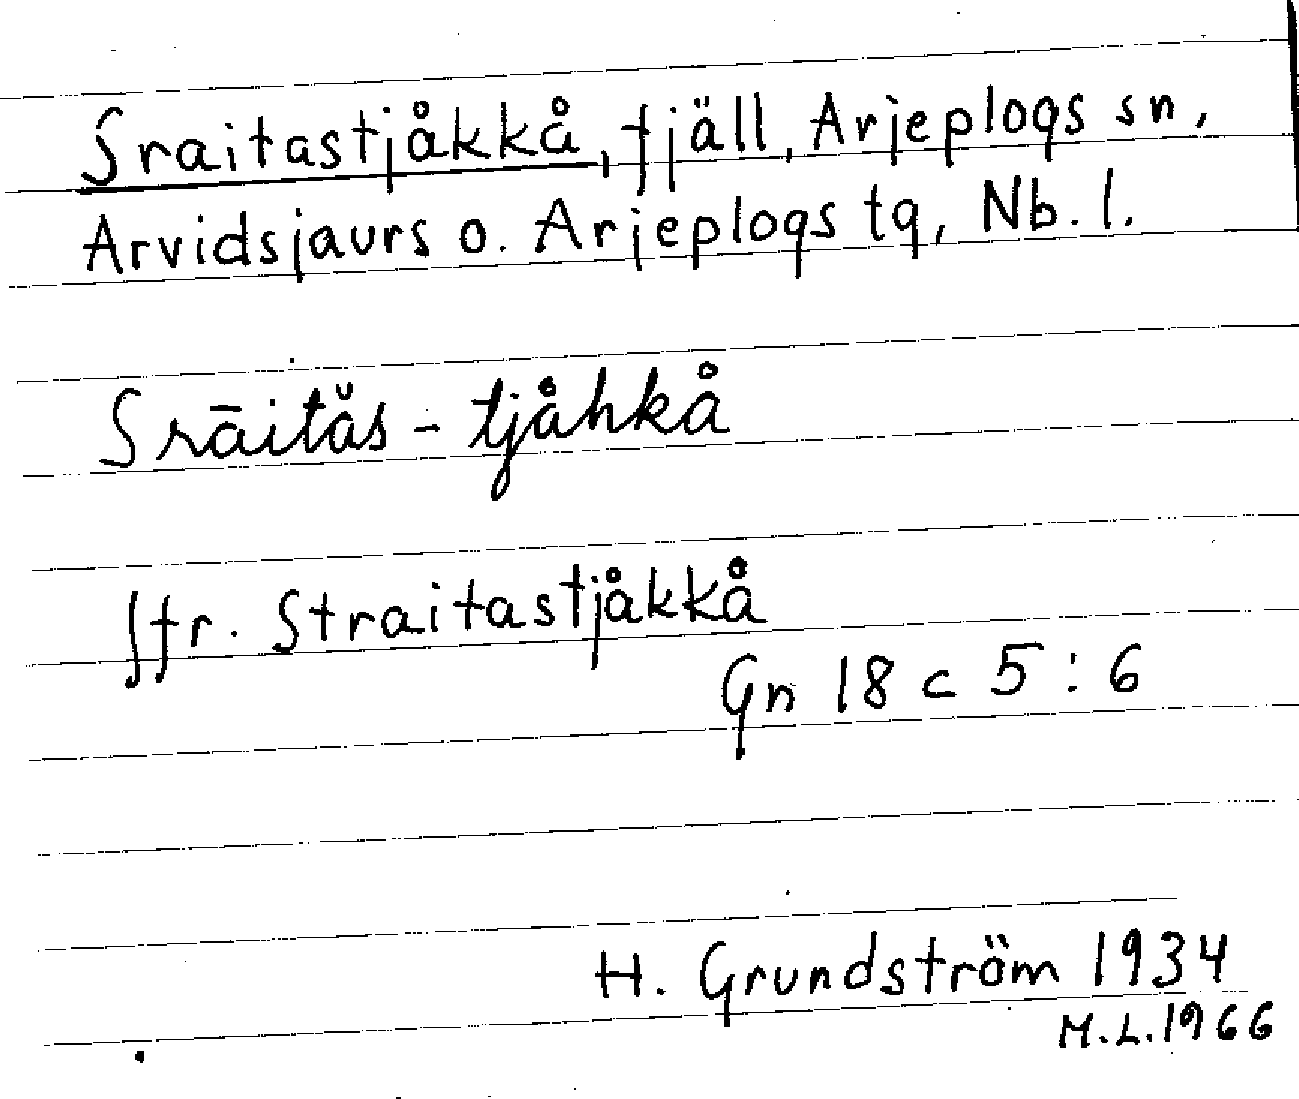 Sraitastjåkkå, fjäll, Arjeplogs sn,
Arvidsjaurs o. Arjeplogs tg, Nb. l.
Srāităs - tjåhkå
Jfr. Straitastjåkkå
Gn 18 c 5:6
H. Grundström 1934
M.L.1966